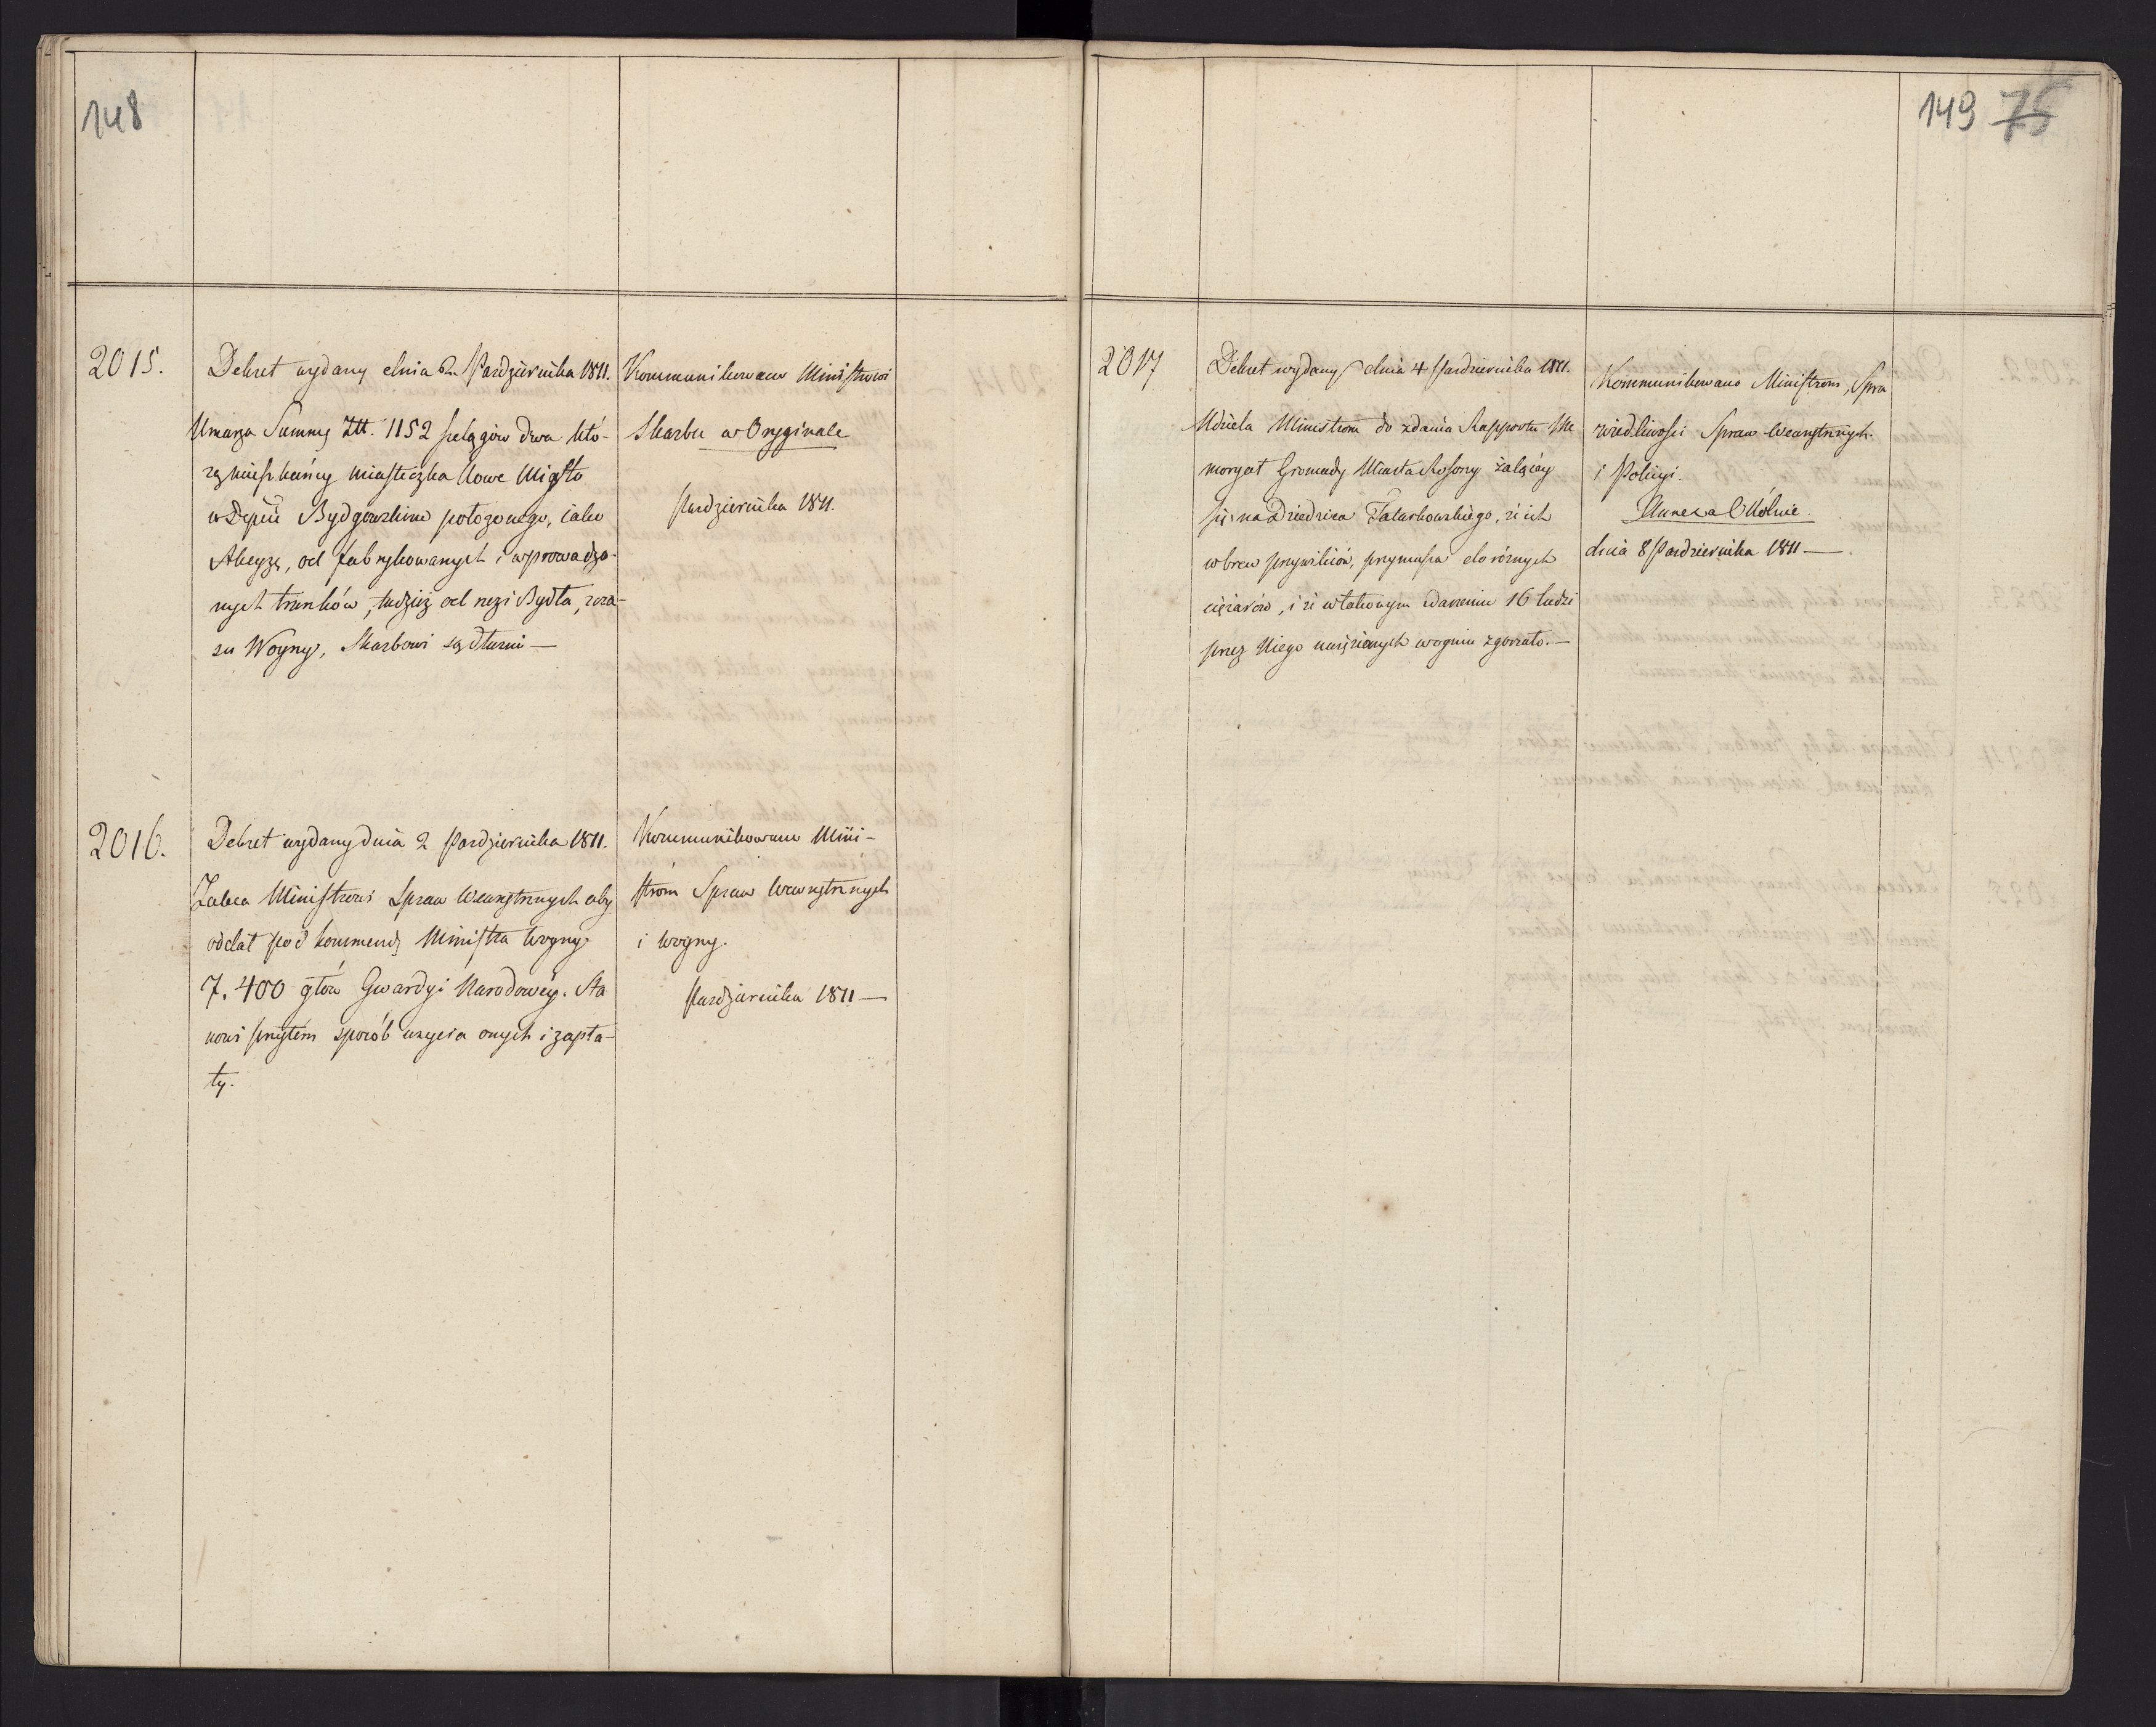 148
2015.
Dekret wydany dnia 2. Pazdziernika 1811.
Umarza Summę Złł. 1152 szelągów dwa któ-
rą mieszkańcy miasteczka Nowe Miasto
w Depcie Bydgowskim położonego, iako
Akcyzę, od fabrykowanych i wprowadzo-
nych trunków, tudzież od rzezi Bydła, zcza-
su Woyny, Skarbowi są dłużni —
Kommunikowano Ministrowi
Skarbu w Oryginale
Pazdziernika 1811.
2016.
Dekret wydany dnia 2 Pazdziernika 1811.
Zaleca Ministrowi Spraw Wewnętrznych aby
oddał pod kommendę Ministra Woyny
7.400 głów Gwardyi Narodowey. Sta
nowi przytém sposób użycia onych i zapła-
ty.
Kommunikowano Mini-
strom Spraw Wewnętrznych
i Woyny.
Pazdziernika 1811 —
149 75
2017
Dekret wydany dnia 4 Pazdziernika 1811.
Udziela Ministrom do zdania Rapportu Me
moryał Gromady Miasta Rosony żalącey
się na Dziedzica Tatarkowskiego, że ich
wbrew przywileiów, przymusza do różnych
ciężarów, i że w takowym zdarzeniu 16 ludzi
przez Niego uwięzionych w ogniu zgorzało. —
Kommunikowano Ministrom, Spra
wiedliwości Spraw Wewnętrznych
i Policyi.
dnia 8 Pazdziernika 1811 —